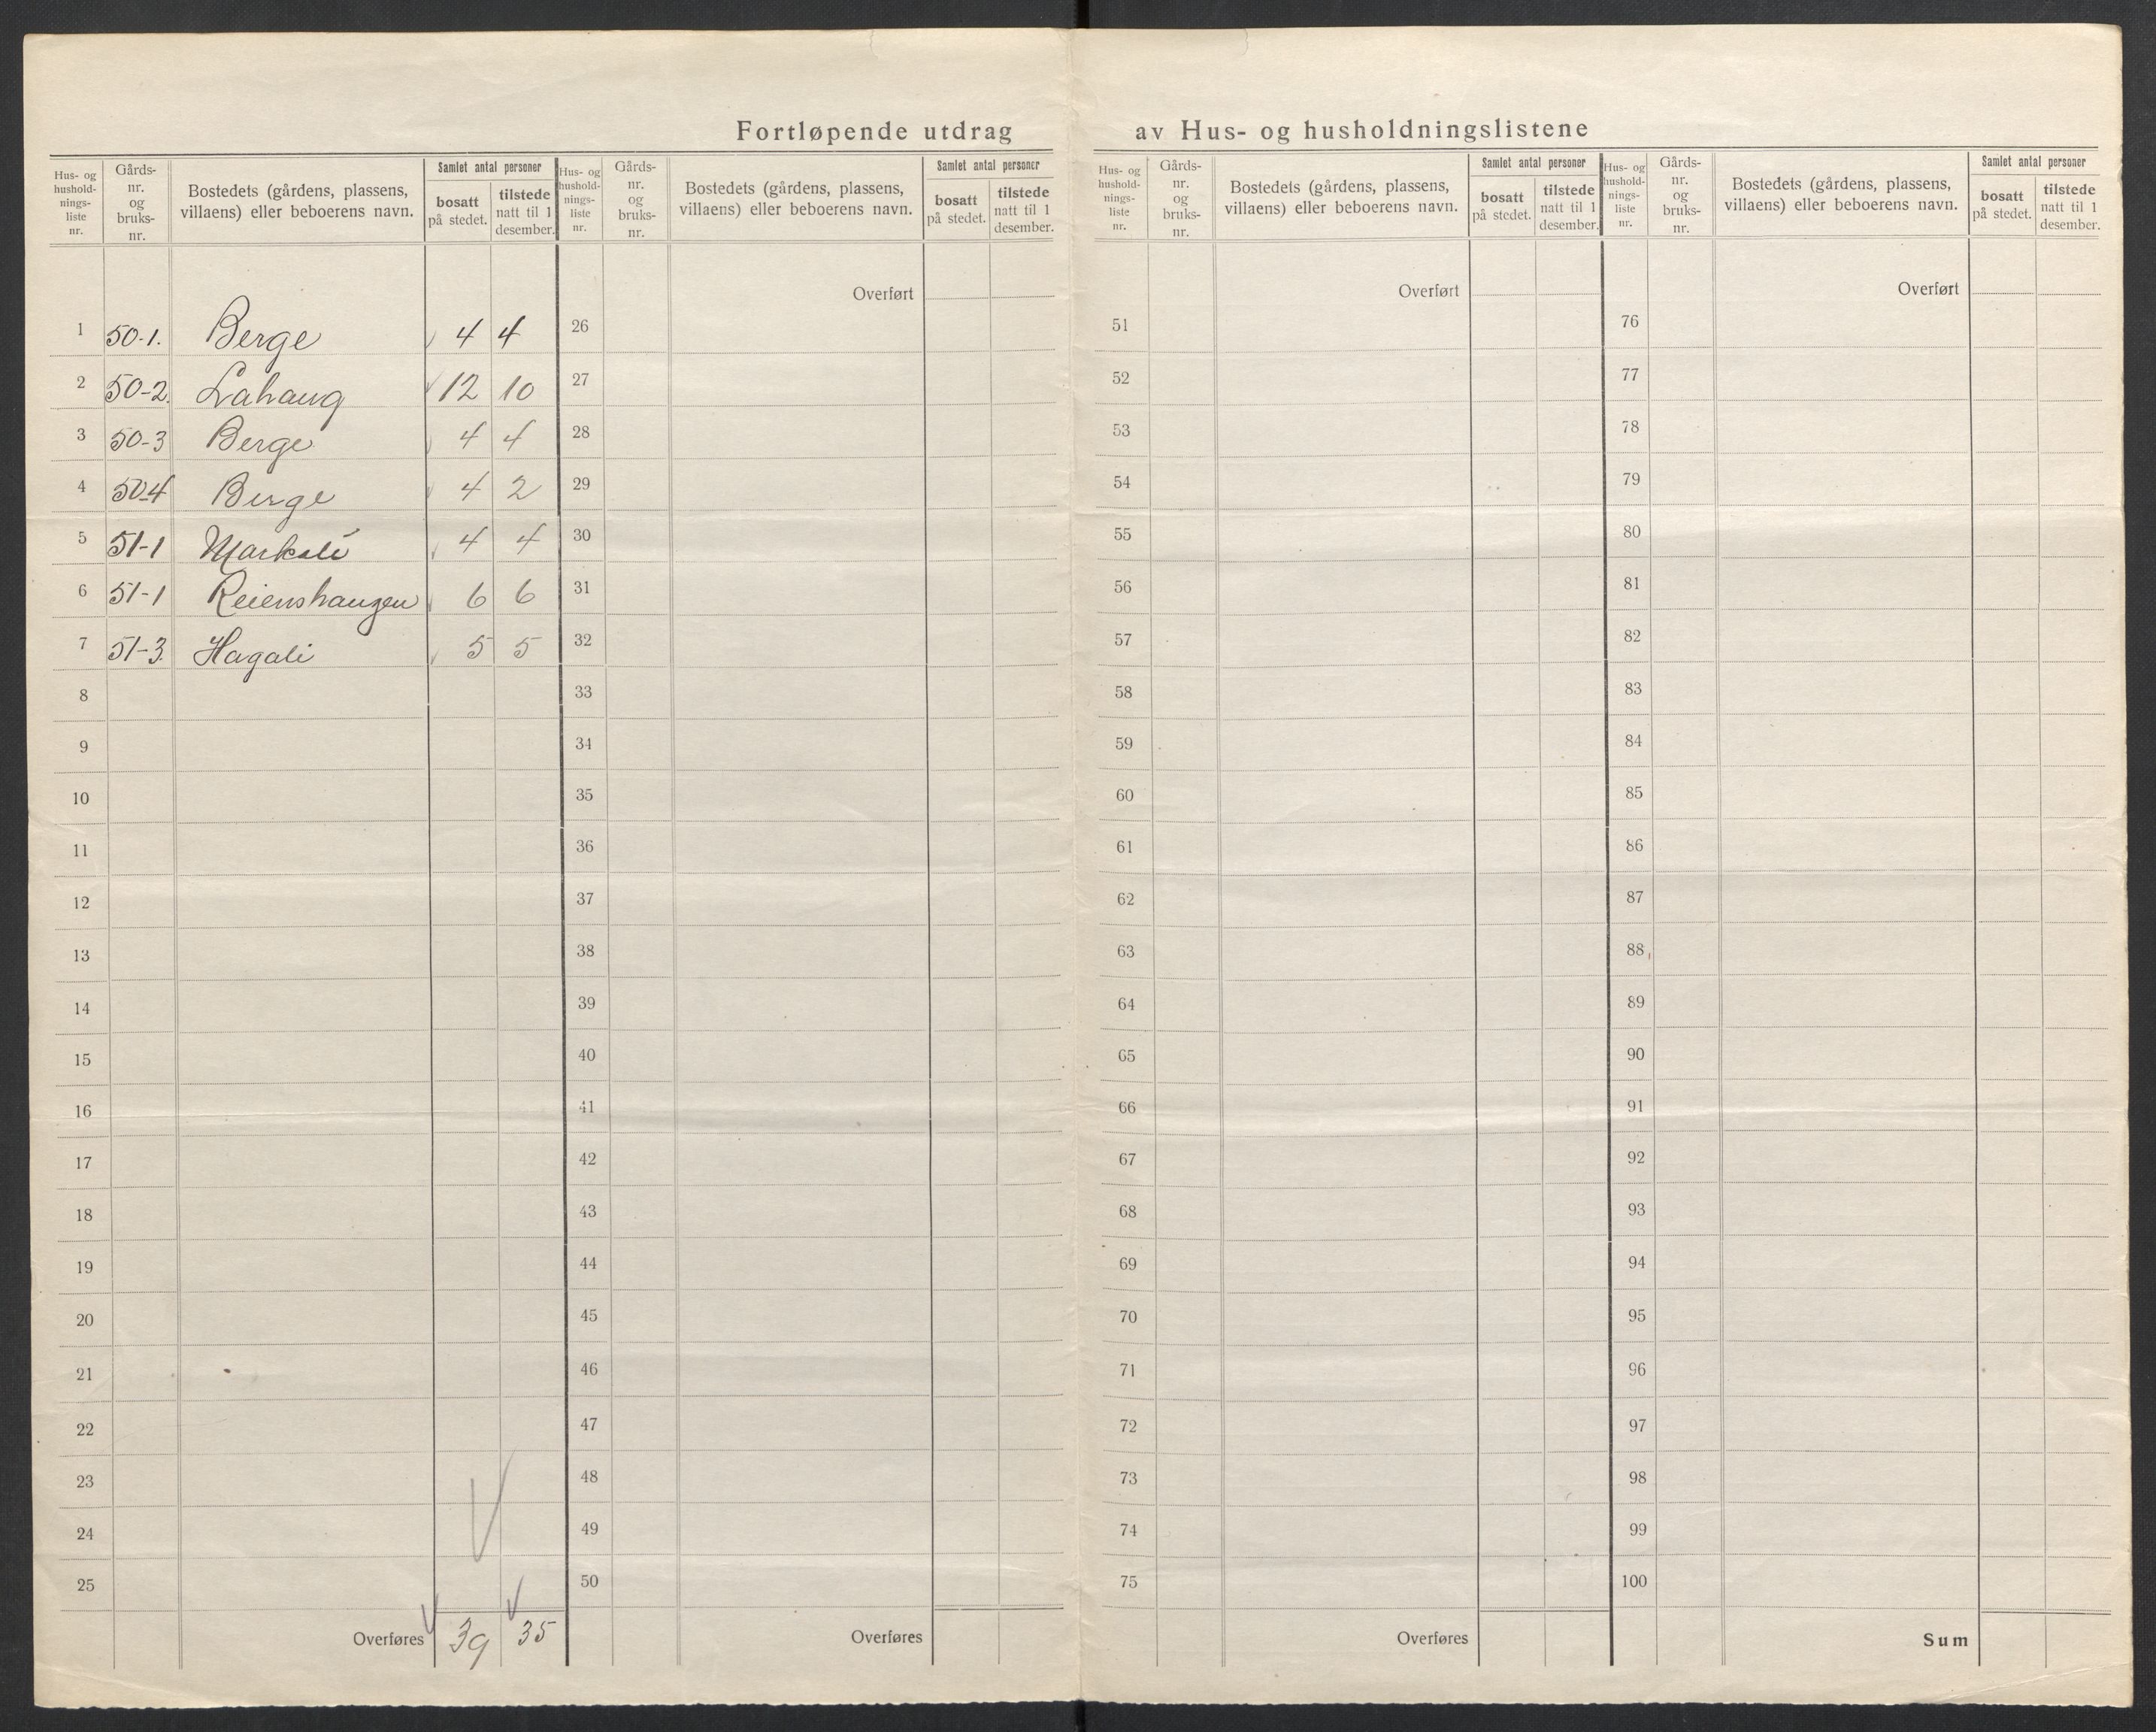 Fortløpende utdrag av Hus- og husholdningslistene
Hus- og hushold- nings- liste nr. Gårds- nr. og bruks- nr. Bostedets (gårdens, plassens, villaens) eller beboerens navn. Samlet antal personer bosatt på stedet. tilstede natt til 1 desember.
Hus- og hushold- nings- liste nr. Gårds- nr. og bruks- nr. Bostedets (gårdens, plassens, villaens) eller beboerens navn. Samlet antal personer bosatt på stedet. tilstede natt til 1 desember.
Hus- og hushold- nings- liste nr. Gårds- nr. og bruks- nr. Bostedets (gårdens, plassens, villaens) eller beboerens navn. Samlet antal personer bosatt på stedet. tilstede natt til 1 desember.
Hus- og hushold- nings- liste nr. Gårds- nr. og bruks- nr. Bostedets (gårdens, plassens, villaens) eller beboerens navn. Samlet antal personer bosatt på stedet. tilstede natt til 1 desember.
Overført Overført Overført
1 50-1. Berge 4 4 26 51 76
2 50-2. Lahaug 12 10 27 52 77
3 50-3 Berge 4 4 28 53 78
4 50-4 Berge 4 2 29 54 79
5 51-1 Markali 4 4 30 55 80
6 51-1 Reienshaugen 6 6 31 56 81
7 51-3. Hagali 5 5 32 57 82
8 33 58 83
9 34 59 84
10 35 60 85
11 36 61 86
12 37 62 87
13 38 63 88
14 39 64 89
15 40 65 90
16 41 66 91
17 42 67 92
18 43 68 93
19 44 69 94
20 45 70 95
21 46 71 96
22 47 72 97
23 48 73 98
24 49 74 99
25 50 75 100
Overføres 39 35 Overføres Overføres Sum